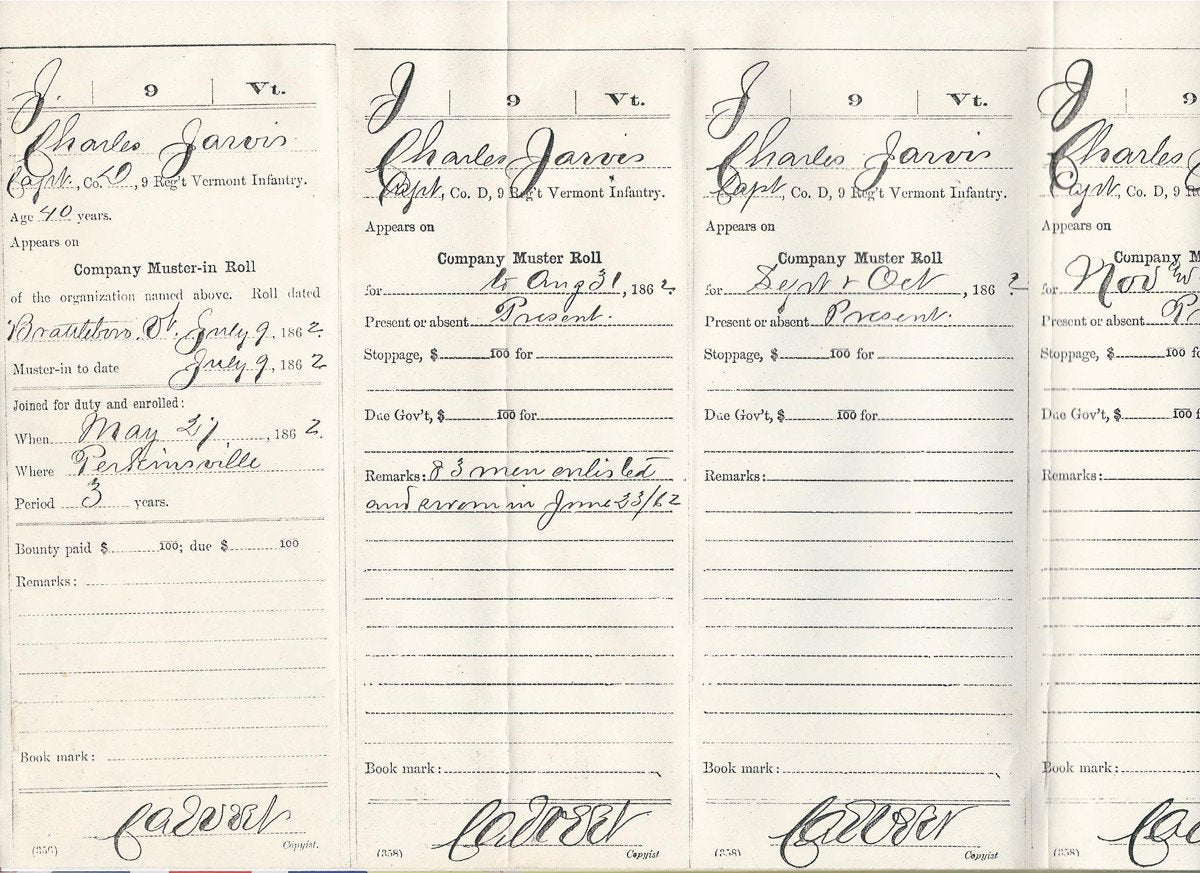 J. | 9 | Vt.
Charles Jarvis
Capt., Co. D, 9 Reg't Vermont Infantry.
Age 40 years.
Appears on
Company Muster-in Roll
of the organization named above. Roll dated
Brattleboro, Vt. July 9, 1862.
Muster-in to date July 9, 1862
Joined for duty and enrolled:
When May 27, 1862.
Where Perkinsville
Period 3 years.
Bounty paid $ 100; due $ 100
Remarks:
Book mark:
(356) Copyist.
J | 9 | Vt.
Charles Jarvis
Capt, Co. D, 9 Reg't Vermont Infantry.
Appears on
Company Muster Roll
for to Aug 31, 1862.
Present or absent Present.
Stoppage, $ 100 for
Due Gov't, $ 100 for
Remarks: 83 men enlisted
and sworn in June 23/62
Book mark:
(358) Copyist
J | 9 | Vt.
Charles Jarvis
Capt, Co. D, 9 Reg't Vermont Infantry.
Appears on
Company Muster Roll
for Sept & Oct, 1862
Present or absent Present.
Stoppage, $ 100 for
Due Gov't, $ 100 for
Remarks:
Book mark:
(358) Copyist
J | 9
Charles J
Capt, Co. D, 9 Re
Appears on
Company M
for Nov
Present or absent Pr
Stoppage, $ 100 fo
Due Gov't, $ 100 f
Remarks:
Book mark:
(358)